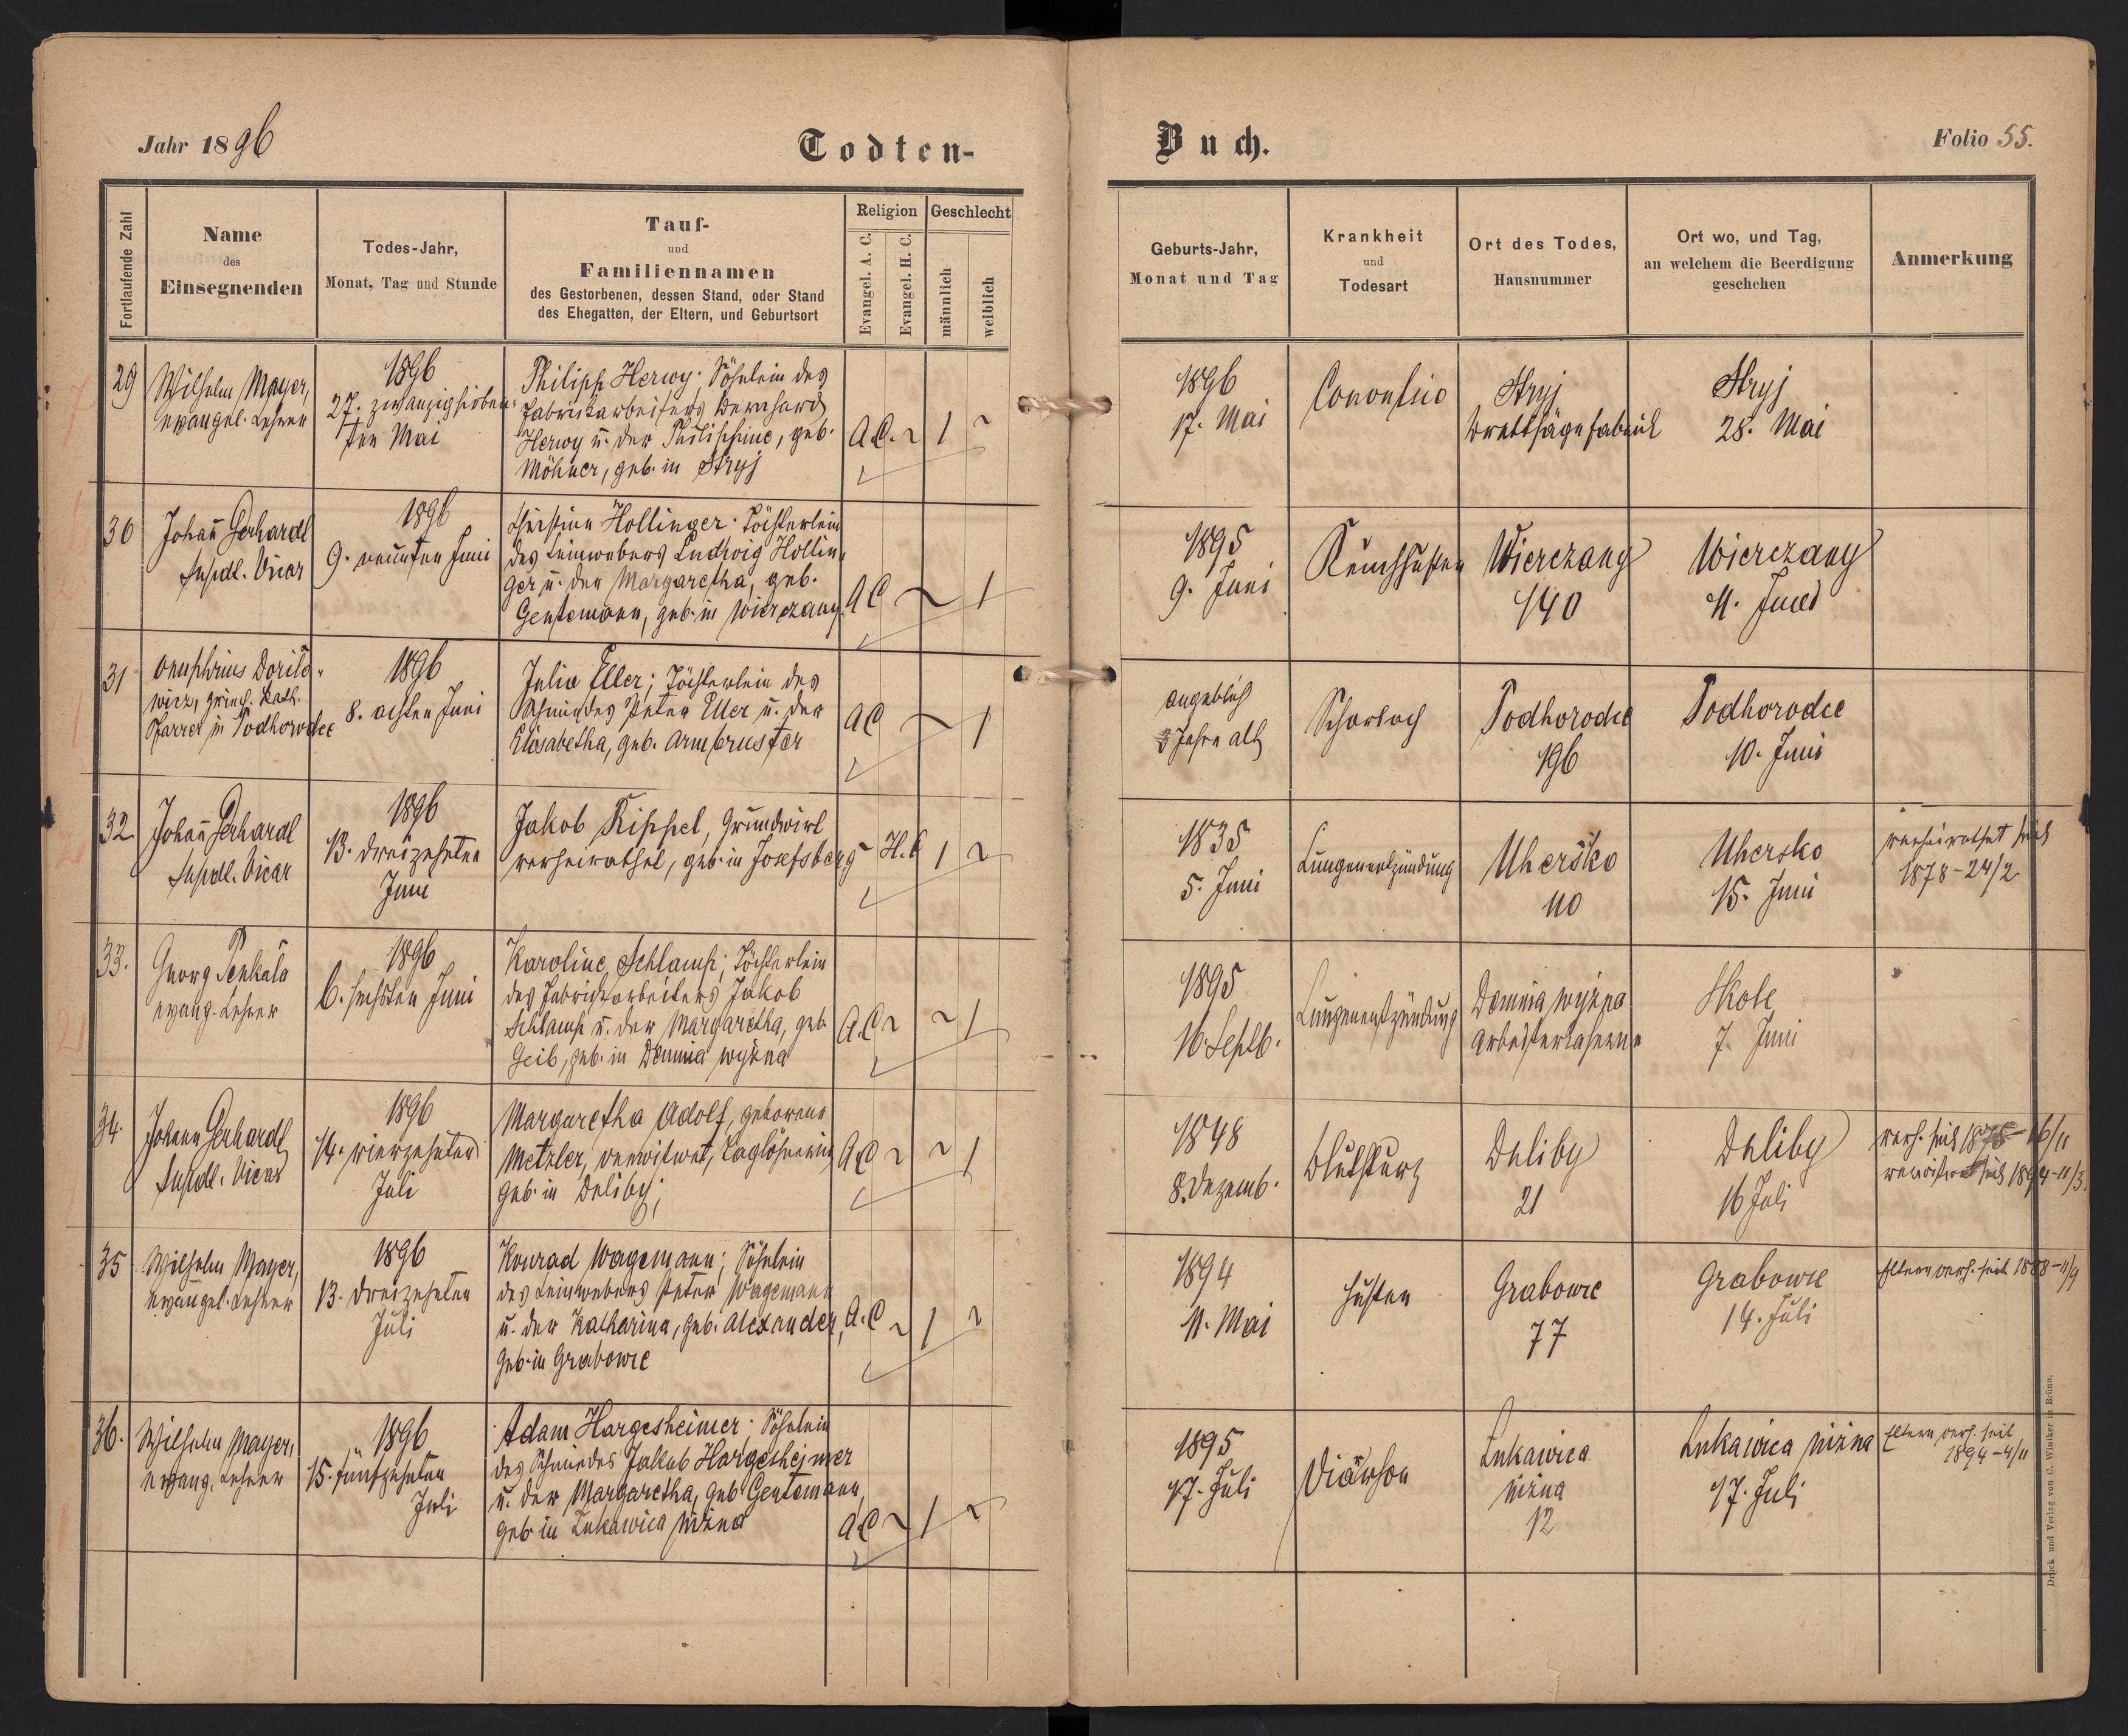 Jahr 1896
Todten-
Buch.
Folio 55.
Fortlaufende Zahl
Name
des
Einsegnenden
Todes-Jahr,
Monat, Tag und Stunde
Tauf-
und
Familiennamen
des Gestorbenen, dessen Stand, oder Stand
des Ehegatten, der Eltern, und Geburtsort
Religion
Evangel. A. C.
Evangel. H. C.
Geschlecht
männlich
weiblich
Geburts-Jahr,
Monat und Tag
Krankheit
und
Todesart
Ort des Todes,
Hausnummer
Ort wo, und Tag,
an welchem die Beerdigung
geschehen
Anmerkung
29
Wilhelm Mayer,
evangel. Lehrer
1896
27. zwanzigsieben-
ten Mai
Philipp Herwy; Söhnlein des
Fabriksarbeiters Bernhard
Herwy u. der Philippine, geb.
Möhner, geb. in Stryj
A.C.
1
1896
17. Mai
Stryj
Brettsägefabrik
Stryj
28. Mai
30
Johann Gerhardt
Supdl. Vicar
1896
9. neunten Juni
Christine Hollinger; Töchterlein
des Leinwebers Ludwig Hollin-
ger u. der Margaretha, geb.
Gentemann, geb. in Wierczany.
A.C
1
1895
9. Juni
Keuchhusten
Wierczany
140
Wierczany
11. Juni
31
Onuphrius Dorilo-
wicz, griech. kath.
Pfarrer in Podhorodce
1896
8. achten Juni
Julia Eller; Töchterlein des
Schmiedes Peter Eller u. der
Elisabetha, geb. Armbruster
A.C
1
angeblich
3 Jahre alt
Scharlach
Podhorodce
196
Podhorodce
10. Juni
32
Johann Gerhardt
Supdl. Vicar
1896
13. dreizehnten
Juni
Jakob Kippel, Grundwirt
verheirathet, geb. in Josefsberg
H.C
1
1835
5. Juni
Lungenentzündung
Uhersko
110
Uhersko
15. Juni
verheirathet seit
1878-24/2
33.
Georg Penkala
evang. Lehrer
1896
6. sechsten Juni
Karoline Schlamp; Töchterlein
des Fabriksarbeiters Jakob
Schlamp u. der Margaretha, geb.
Geib, geb. in Demnia wyżna
A.C
1
1895
16. Septb.
Lungenentzündung
Demnia wyżna
Arbeiterkaserne
Skole
7. Juni
34.
Johann Gerhardt
Supdl. Vicar
1896
14. vierzehnten
Juli
Margaretha Adolf, geborene
Metzler, verwitwet, Taglöhnerin
geb. in Deliby;
A.C
1
1848
8. Dezemb.
Blutsturz
Deliby
21
Deliby
16 Juli
verh. seit 1875-16/11
verwitwet seit 1894-11/3.
35
Wilhelm Mayer,
evangel. Lehrer
1896
13. dreizehnten
Juli
Konrad Wagemann; Söhnlein
des Leinwebers Peter Wagemann
u. der Katharina, geb. Alexander,
geb. in Grabowce
A.C
1
1894
11. Mai
Husten
Grabowce
77
Grabowce
14. Juli
Eltern verh. seit 1888-11/9
36.
Wilhelm Mayer,
evang. Lehrer
1896
15. fünfzehnten
Juli
Adam Hargesheimer; Söhnlein
des Schmiedes Jakob Hargesheimer
u. der Margaretha, geb. Gentemann,
geb. in Lukawica niżna
A.C
1
1895
17. Juli
Diarrhoe
Lukawica
niżna
12
Lukawica niżna
17. Juli
Eltern verh. seit
1894-4/11
Druck und Verlag von C. Winiker in Brünn.